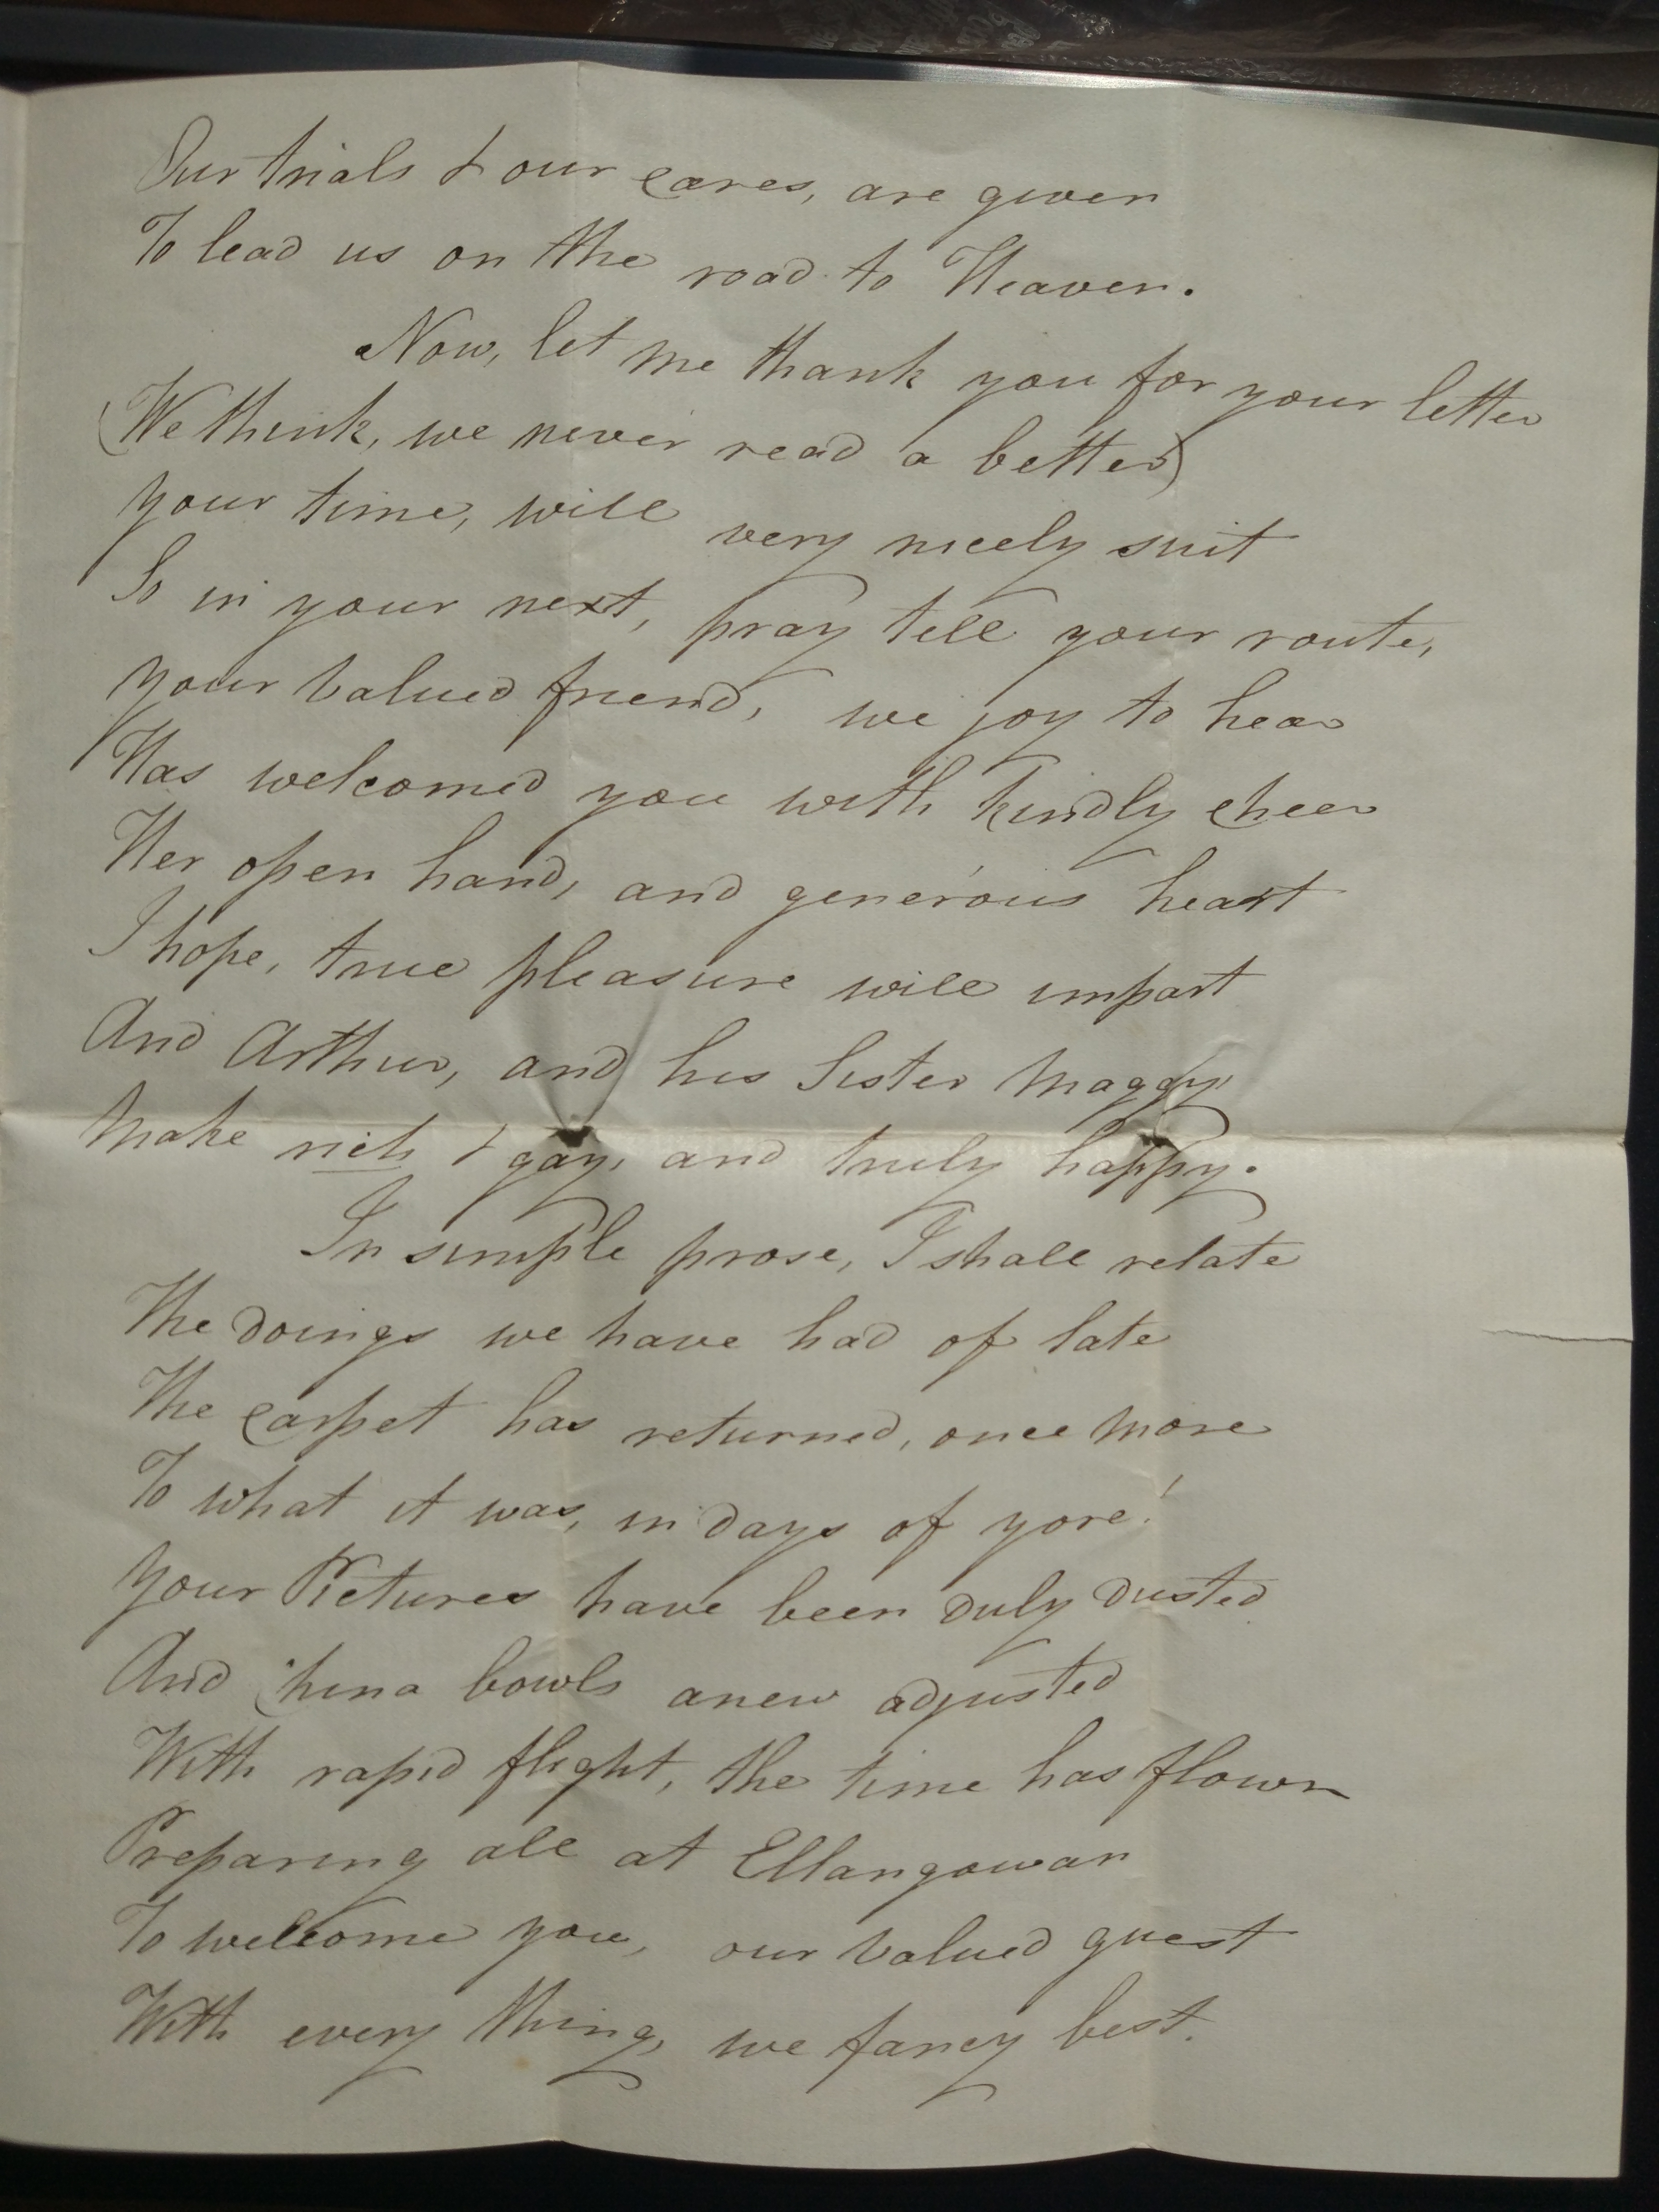 Our trials & our cares, are given
To lead us on the road to Heaven.
Now, let me thank you for your letter
(We think, we never read a better)
Your time, will very nicely suit
So in your next, pray tell your route,
Your valued friend, we joy to hear
Has welcomed you with kindly cheer
Her open hand, and generous heart
I hope, true pleasure will impart
And Arthur, and his Sister Maggy
Make rich & gay, and truly happy.
In simple prose, I shall relate
The doings we have had of late
The carpet has returned, once more
To what it was, in days of yore!
Your Pictures have been duly dusted
And China bowls anew adjusted
With rapid flight, the time has flown
Preparing all at Ellangowan
To welcome you, our valued guest
With every thing, we fancy best.